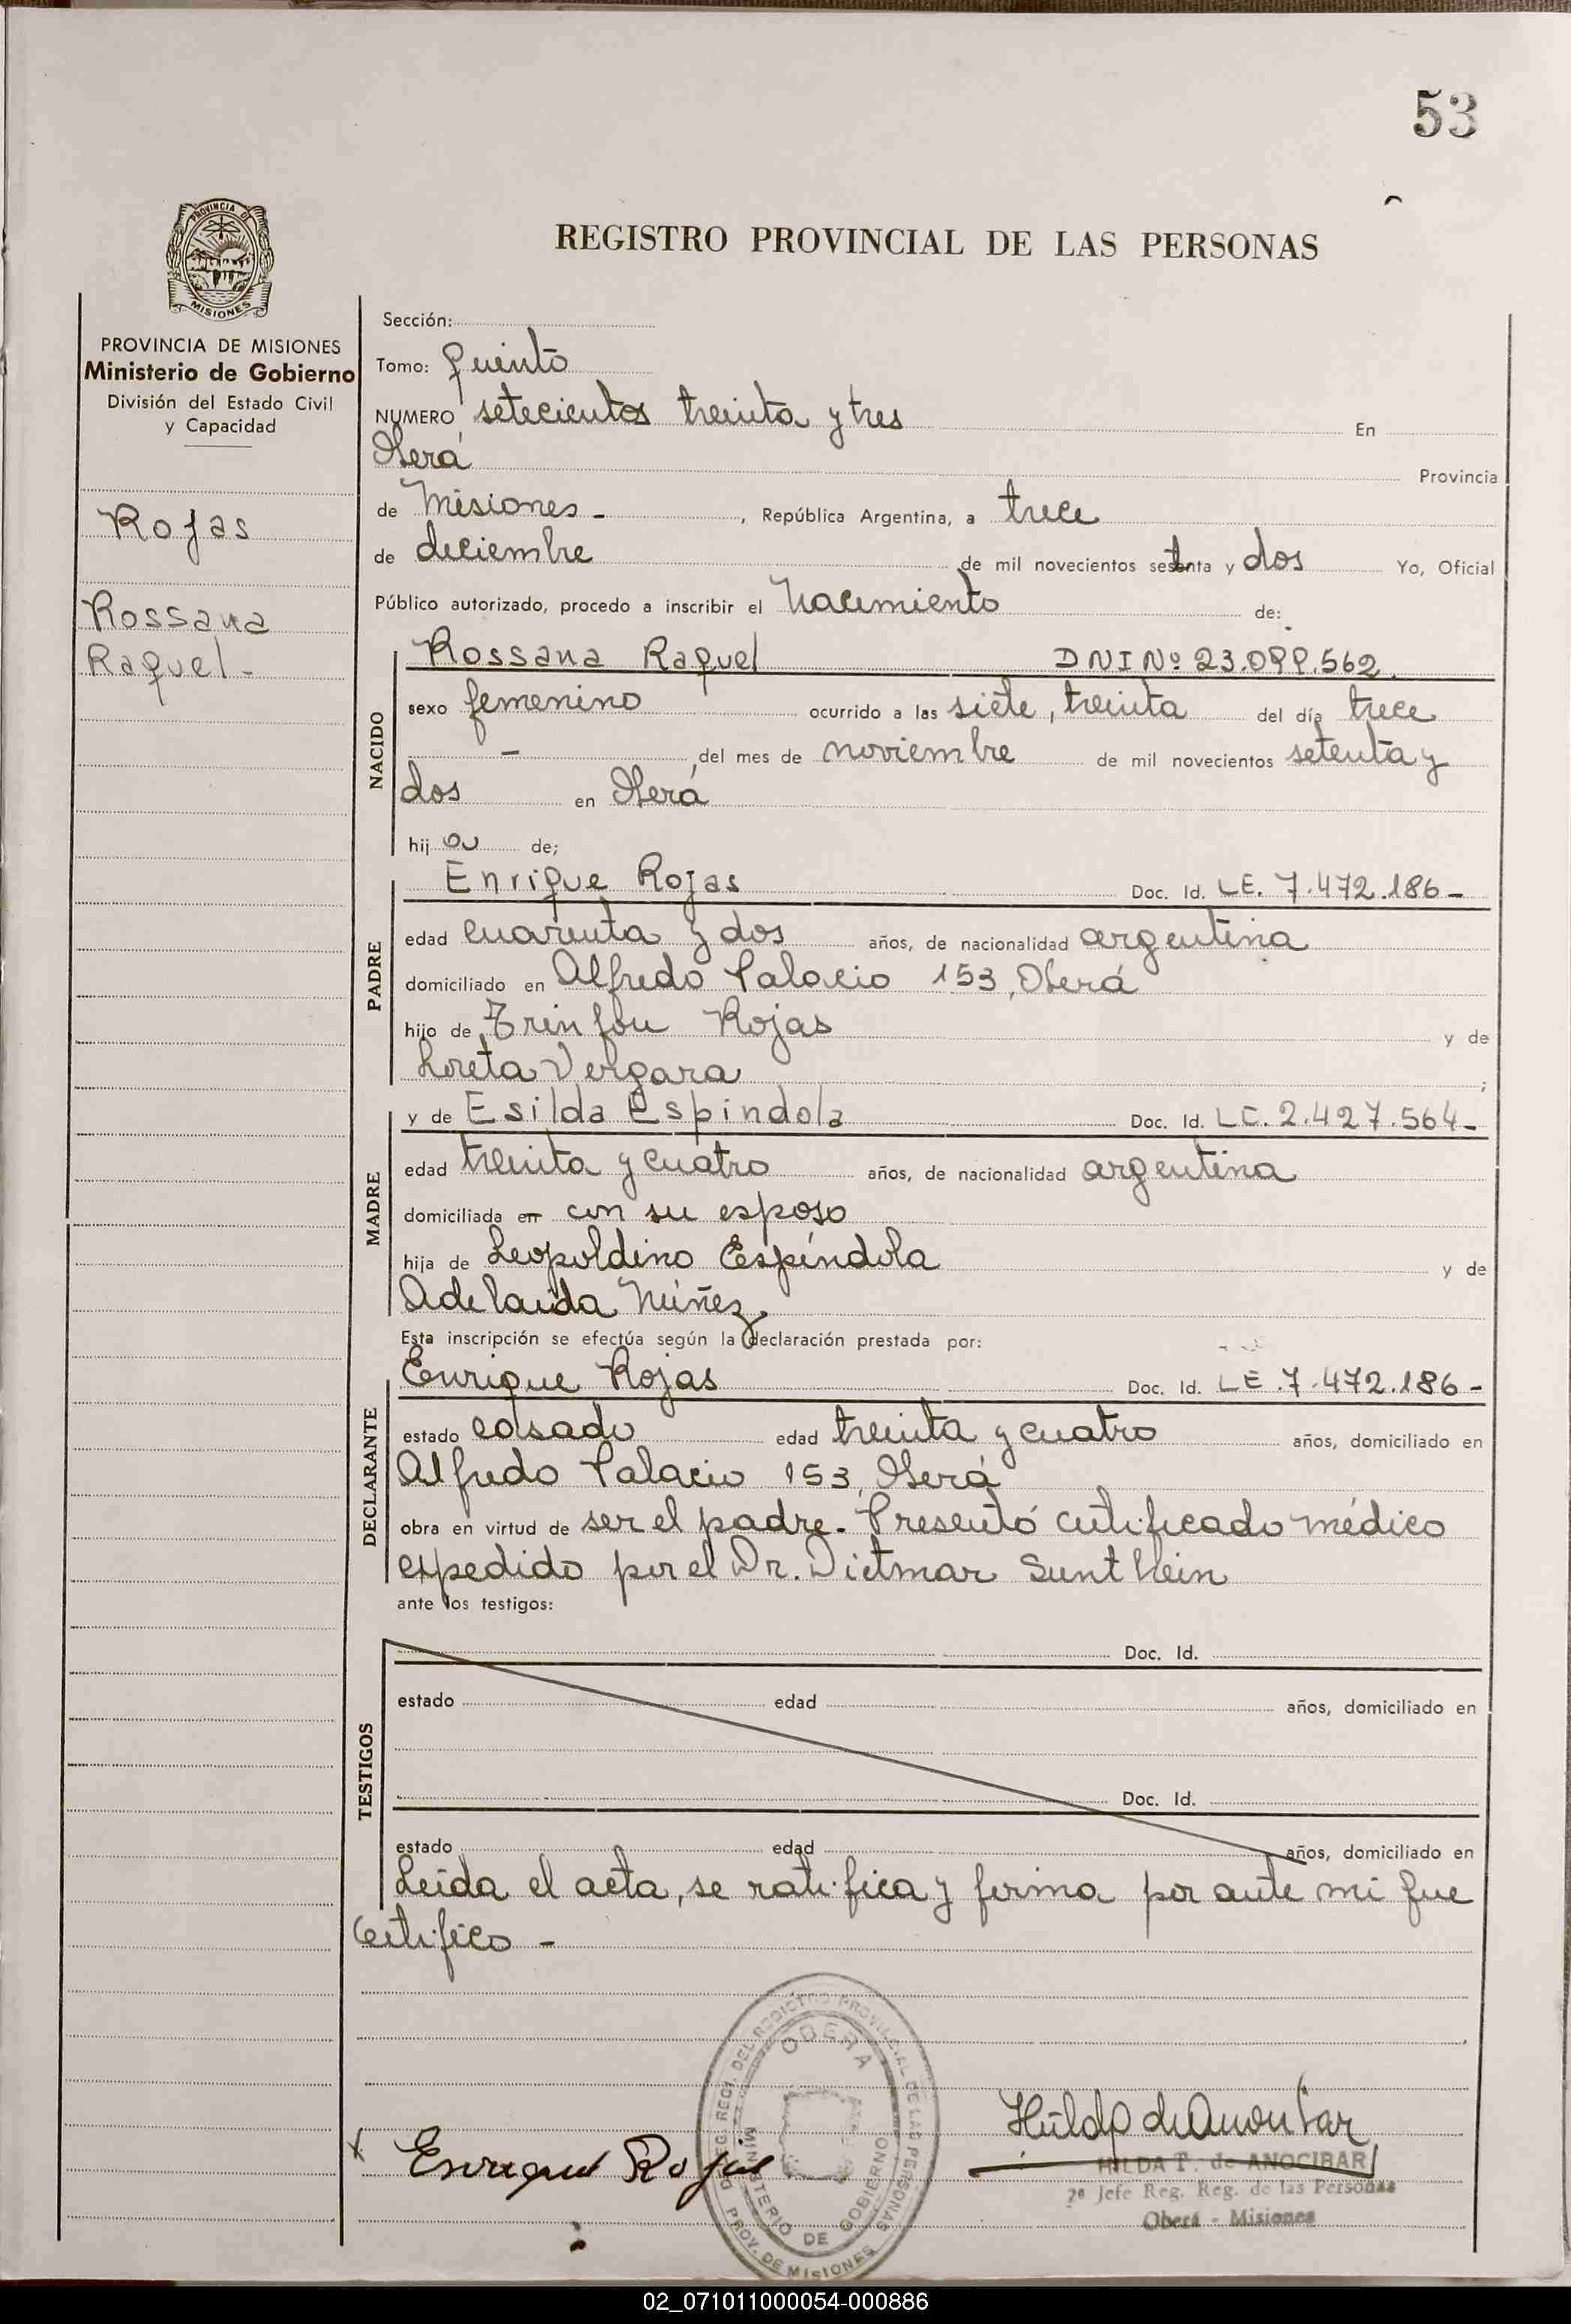 53
REGISTRO PROVINCIAL DE LAS PERSONAS
PROVINCIA DE
MISIONES
PROVINCIA DE MISIONES
Ministerio de Gobierno
División del Estado Civil
y Capacidad
Rojas
Rossana
Raquel -
Sección:
Tomo: quinto
NUMERO setecientos treinta y tres En
Oberá Provincia
de Misiones - , República Argentina, a trece
de diciembre de mil novecientos setenta y dos Yo, Oficial
Público autorizado, procedo a inscribir el Nacimiento de:
NACIDO
Rossana Raquel DNI Nº 23.099.562
sexo femenino ocurrido a las siete, treinta del día trece
- del mes de noviembre de mil novecientos setenta y
dos en Oberá
hij a de;
PADRE
Enrique Rojas Doc. Id. LE. 7.472.186-
edad cuarenta y dos años, de nacionalidad argentina
domiciliado en Alfredo Palacio 153, Oberá
hijo de Rojas y de
Loreta Vergara ;
MADRE
y de Esilda Espindola Doc. Id. LC. 2.427.564-
edad treinta y cuatro años, de nacionalidad argentina
domiciliada en con su esposo
hija de Leopoldino Espíndola y de
Adelaida Núñez.
Esta inscripción se efectúa según la declaración prestada por:
DECLARANTE
Enrique Rojas Doc. Id. LE.7.472.186-
estado casado edad treinta y cuatro años, domiciliado en
Alfredo Palacio 153, Oberá
obra en virtud de ser el padre. Presentó certificado médico
expedido por el Dr. Dietmar Sunthein
ante los testigos:
TESTIGOS
Doc. Id.
estado edad años, domiciliado en
Doc. Id.
estado edad años, domiciliado en
Leída el acta, se ratifica y firma por ante mi que
Certifico -
DELEG. REG. DEL REGISTRO PROVINCIAL DE LAS PERSONAS
OBERA
MINISTERIO DE GOBIERNO
PROV. DE MISIONES
x Enrique Rojas
HILDA T. de ANOCIBAR
2º Jefe Reg. Reg. de las Personas
Oberá - Misiones
02_071011000054-000886